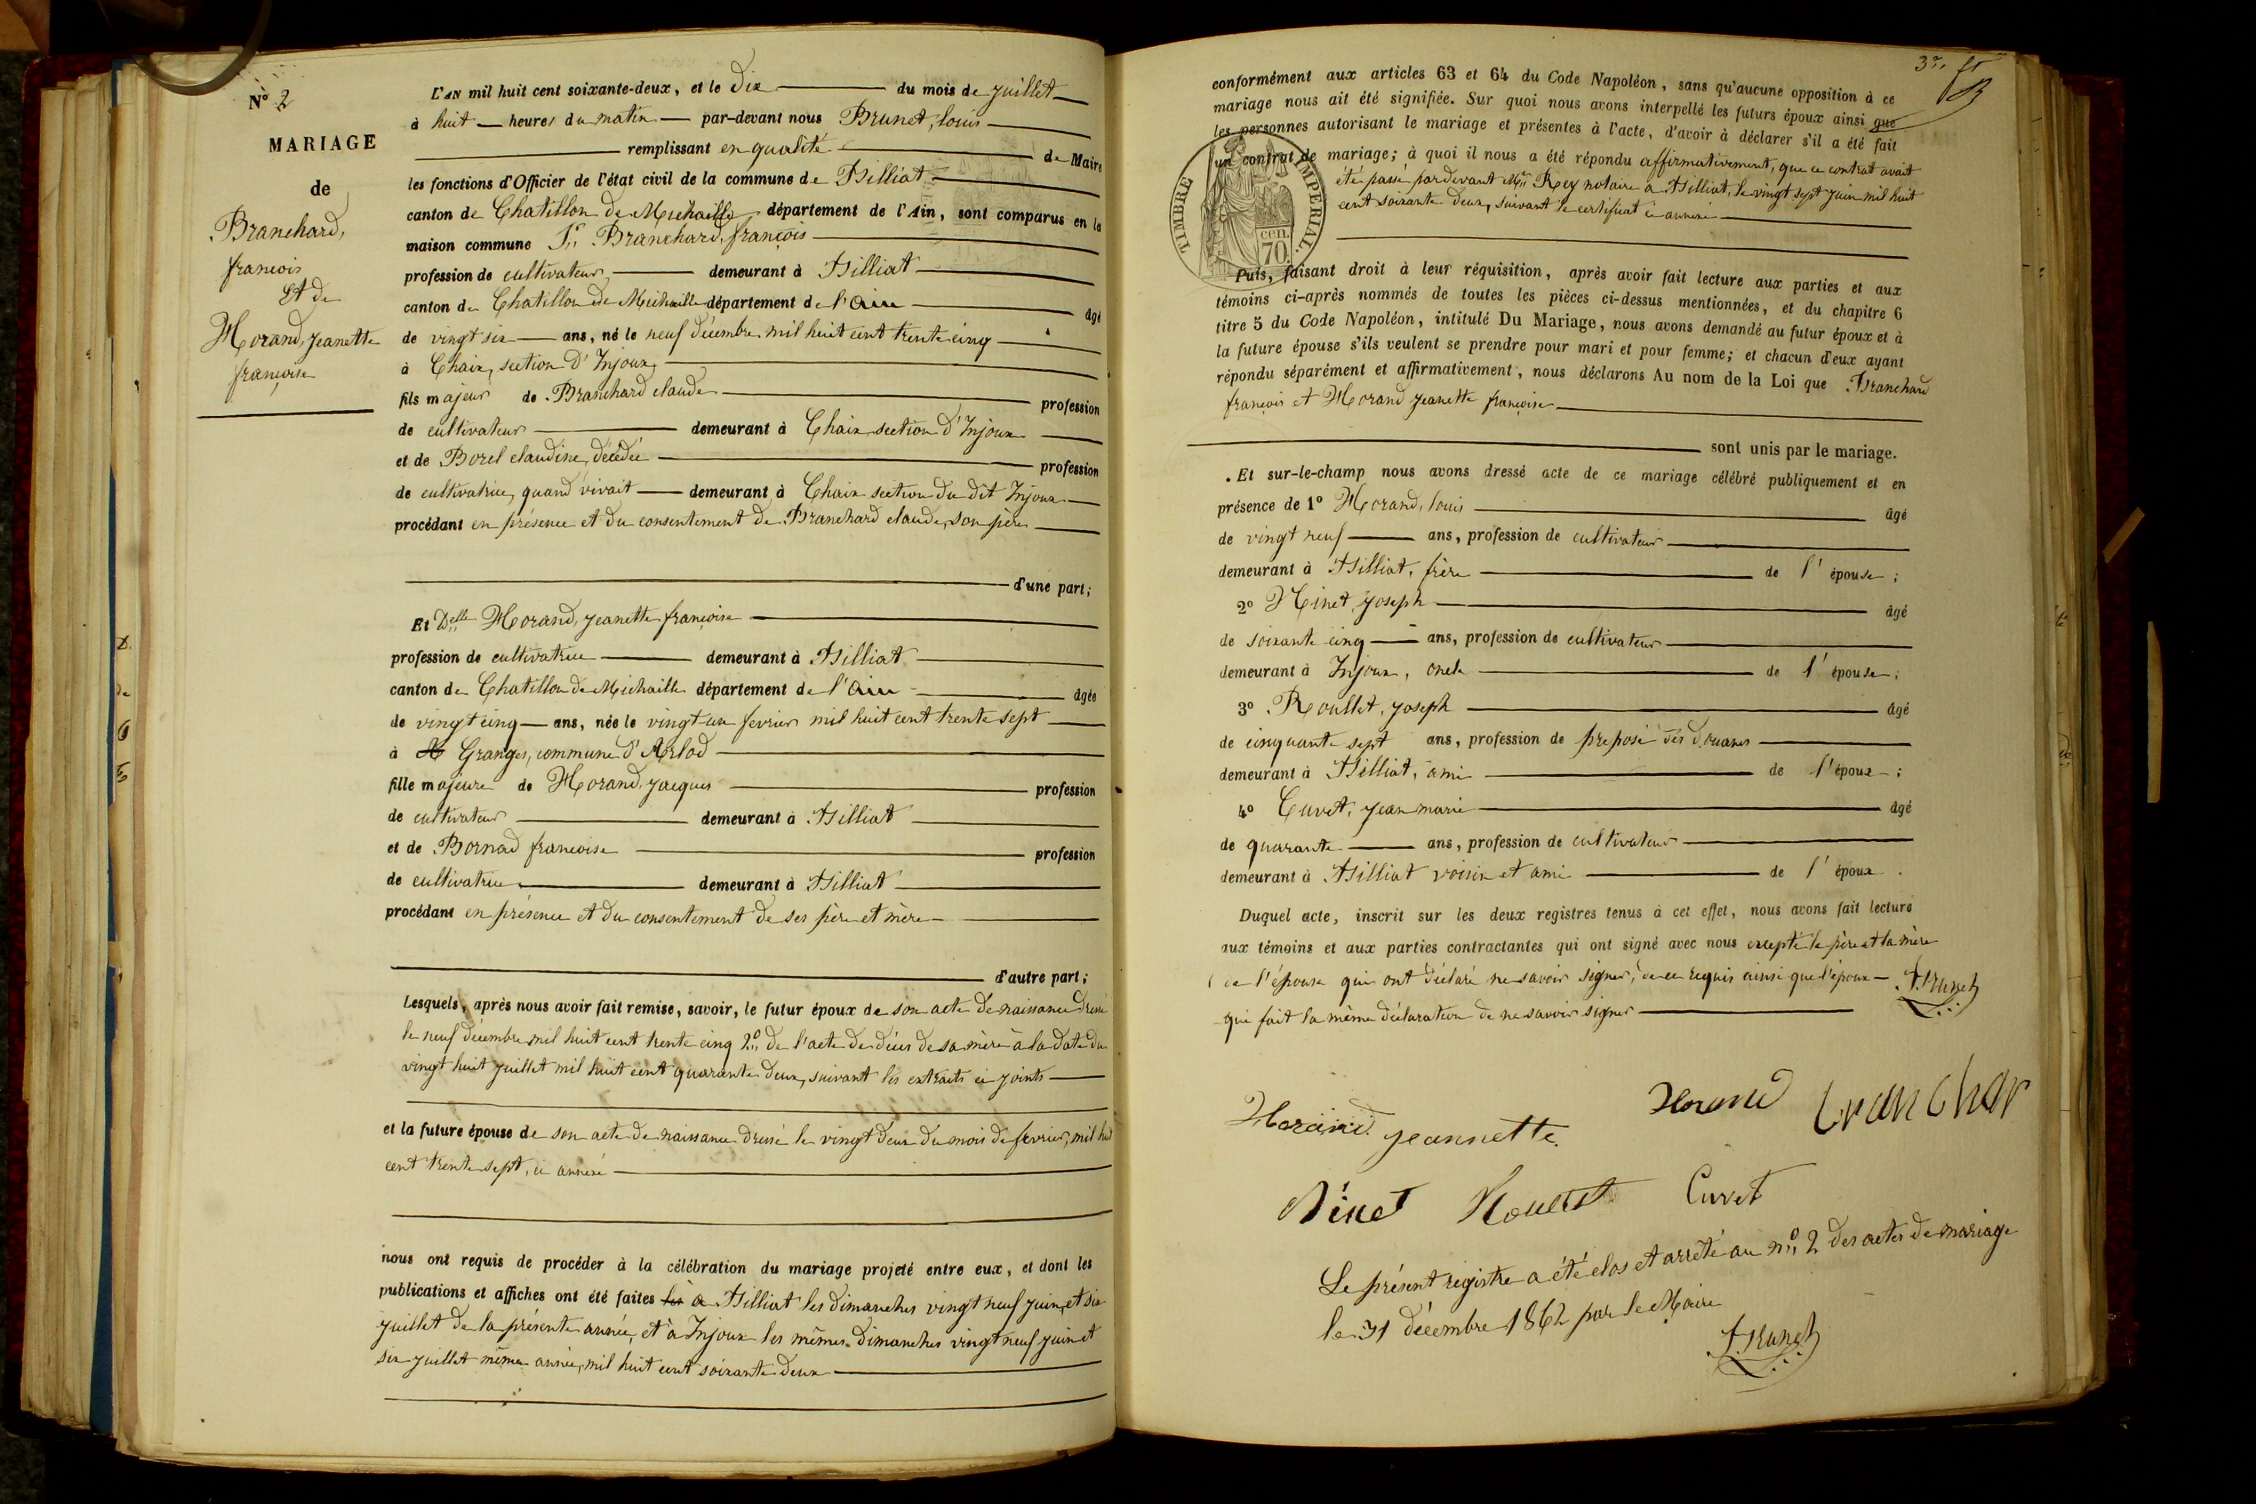 Nº 2
MARIAGE
de
Branchard,
françois
Et de
Morand, Jeanette
françoise
L'AN mil huit cent soixante-deux, et le Dix du mois de juillet
à huit heures du matin par-devant nous Brunet, louis
remplissant en qualité de Maire
les fonctions d'Officier de l'état civil de la commune de Billiat
canton de Chatillon de Michaille département de l'Ain, sont comparus en la
maison commune Sr Branchard, françois
profession de cultivateur demeurant à Billiat
canton de Chatillon de Michaille département de l'Ain âgé
de vingt six ans, né le neuf décembre mil huit cent trente cinq
à Chaix, section D'Injoux
fils majeur de Branchard claude profession
de cultivateur demeurant à Chaix section d'Injoux
et de Borel claudine, décédée profession
de cultivatrice, quand vivait demeurant à Chaix section du dit Injoux
procédant en présence et du consentement de Branchard claude, son père
d'une part;
Et Delle Morand, Jeanette françoise
profession de cultivatrice demeurant à Billiat
canton de Chatillon de Michaille département de l'Ain âgée
de vingt cinq ans, née le vingt un fevrier mil huit cent trente sept
à Granges, commune d'Arlod
fille majeure de Morand, Jacques profession
de cultivateur demeurant à Billiat
et de Bornad françoise profession
de cultivatrice demeurant à Billiat
procédant en présence et du consentement de ses père et mère
d'autre part;
Lesquels, après nous avoir fait remise, savoir, le futur époux de son acte de naissance dressé
le neuf décembre mil huit cent trente cinq 2º de l'acte de décès de sa mère à la date du
vingt huit juillet mil huit cent quarante deux, suivant les extraits ci joints
et la future épouse de son acte de naissance dressé le vingt deux du mois de fevrier, mil huit
cent trente sept, ci annexé
nous ont requis de procéder à la célébration du mariage projeté entre eux, et dont les
publications et affiches ont été faites à Billiat les dimanches vingt neuf juin, et six
juillet de la présente année, et à Injoux les mêmes dimanches vingt neuf juin et
six juillet même année, mil huit cent soixante deux
conformément aux articles 63 et 64 du Code Napoléon, sans qu'aucune opposition à ce
mariage nous ait été signifiée. Sur quoi nous avons interpellé les futurs époux ainsi que
les personnes autorisant le mariage et présentes à l'acte, d'avoir à déclarer s'il a été fait
un contrat de mariage; à quoi il nous a été répondu affirmativement, que ce contrat avait
été passé pardevant Me Rey notaire à Billiat, le vingt sept juin mil huit
cent soixante deux, suivant le certificat ci annexé
TIMBRE IMPÉRIAL.
cen.
70
Puis, faisant droit à leur réquisition, après avoir fait lecture aux parties et aux
témoins ci-après nommés de toutes les pièces ci-dessus mentionnées, et du chapitre 6
titre 5 du Code Napoléon, intitulé Du Mariage, nous avons demandé au futur époux et à
la future épouse s'ils veulent se prendre pour mari et pour femme; et chacun d'eux ayant
répondu séparément et affirmativement, nous déclarons Au nom de la Loi que Branchard
françois et Morand Jeanette françoise
sont unis par le mariage.
Et sur-le-champ nous avons dressé acte de ce mariage célébré publiquement et en
présence de 1º Morand, louis âgé
de vingt neuf ans, profession de cultivateur
demeurant à Billiat, frère de l'épouse;
2º Ninet, Joseph âgé
de soixante cinq ans, profession de cultivateur
demeurant à Injoux, oncle de l'épouse;
3º Roullet, Joseph âgé
de cinquante sept ans, profession de préposé des douanes
demeurant à Billiat, ami de l'époux;
4º Cuvet, Jean marie âgé
de quarante ans, profession de cultivateur
demeurant à Billiat voisin et ami de l'époux.
Duquel acte, inscrit sur les deux registres tenus à cet effet, nous avons fait lecture
aux témoins et aux parties contractantes qui ont signé avec nous excepté le père et la mère
de l'épouse qui ont déclaré ne savoir signer, de ce requis ainsi que l'époux
qui fait la même déclaration de ne savoir signer
Brunet
Morand Jeannette Morand branchar
Ninet Roullet Cuvet
Le présent registre a été clos et arrêté au nº 2 des actes de mariage
le 31 décembre 1862 par le Maire
Brunet